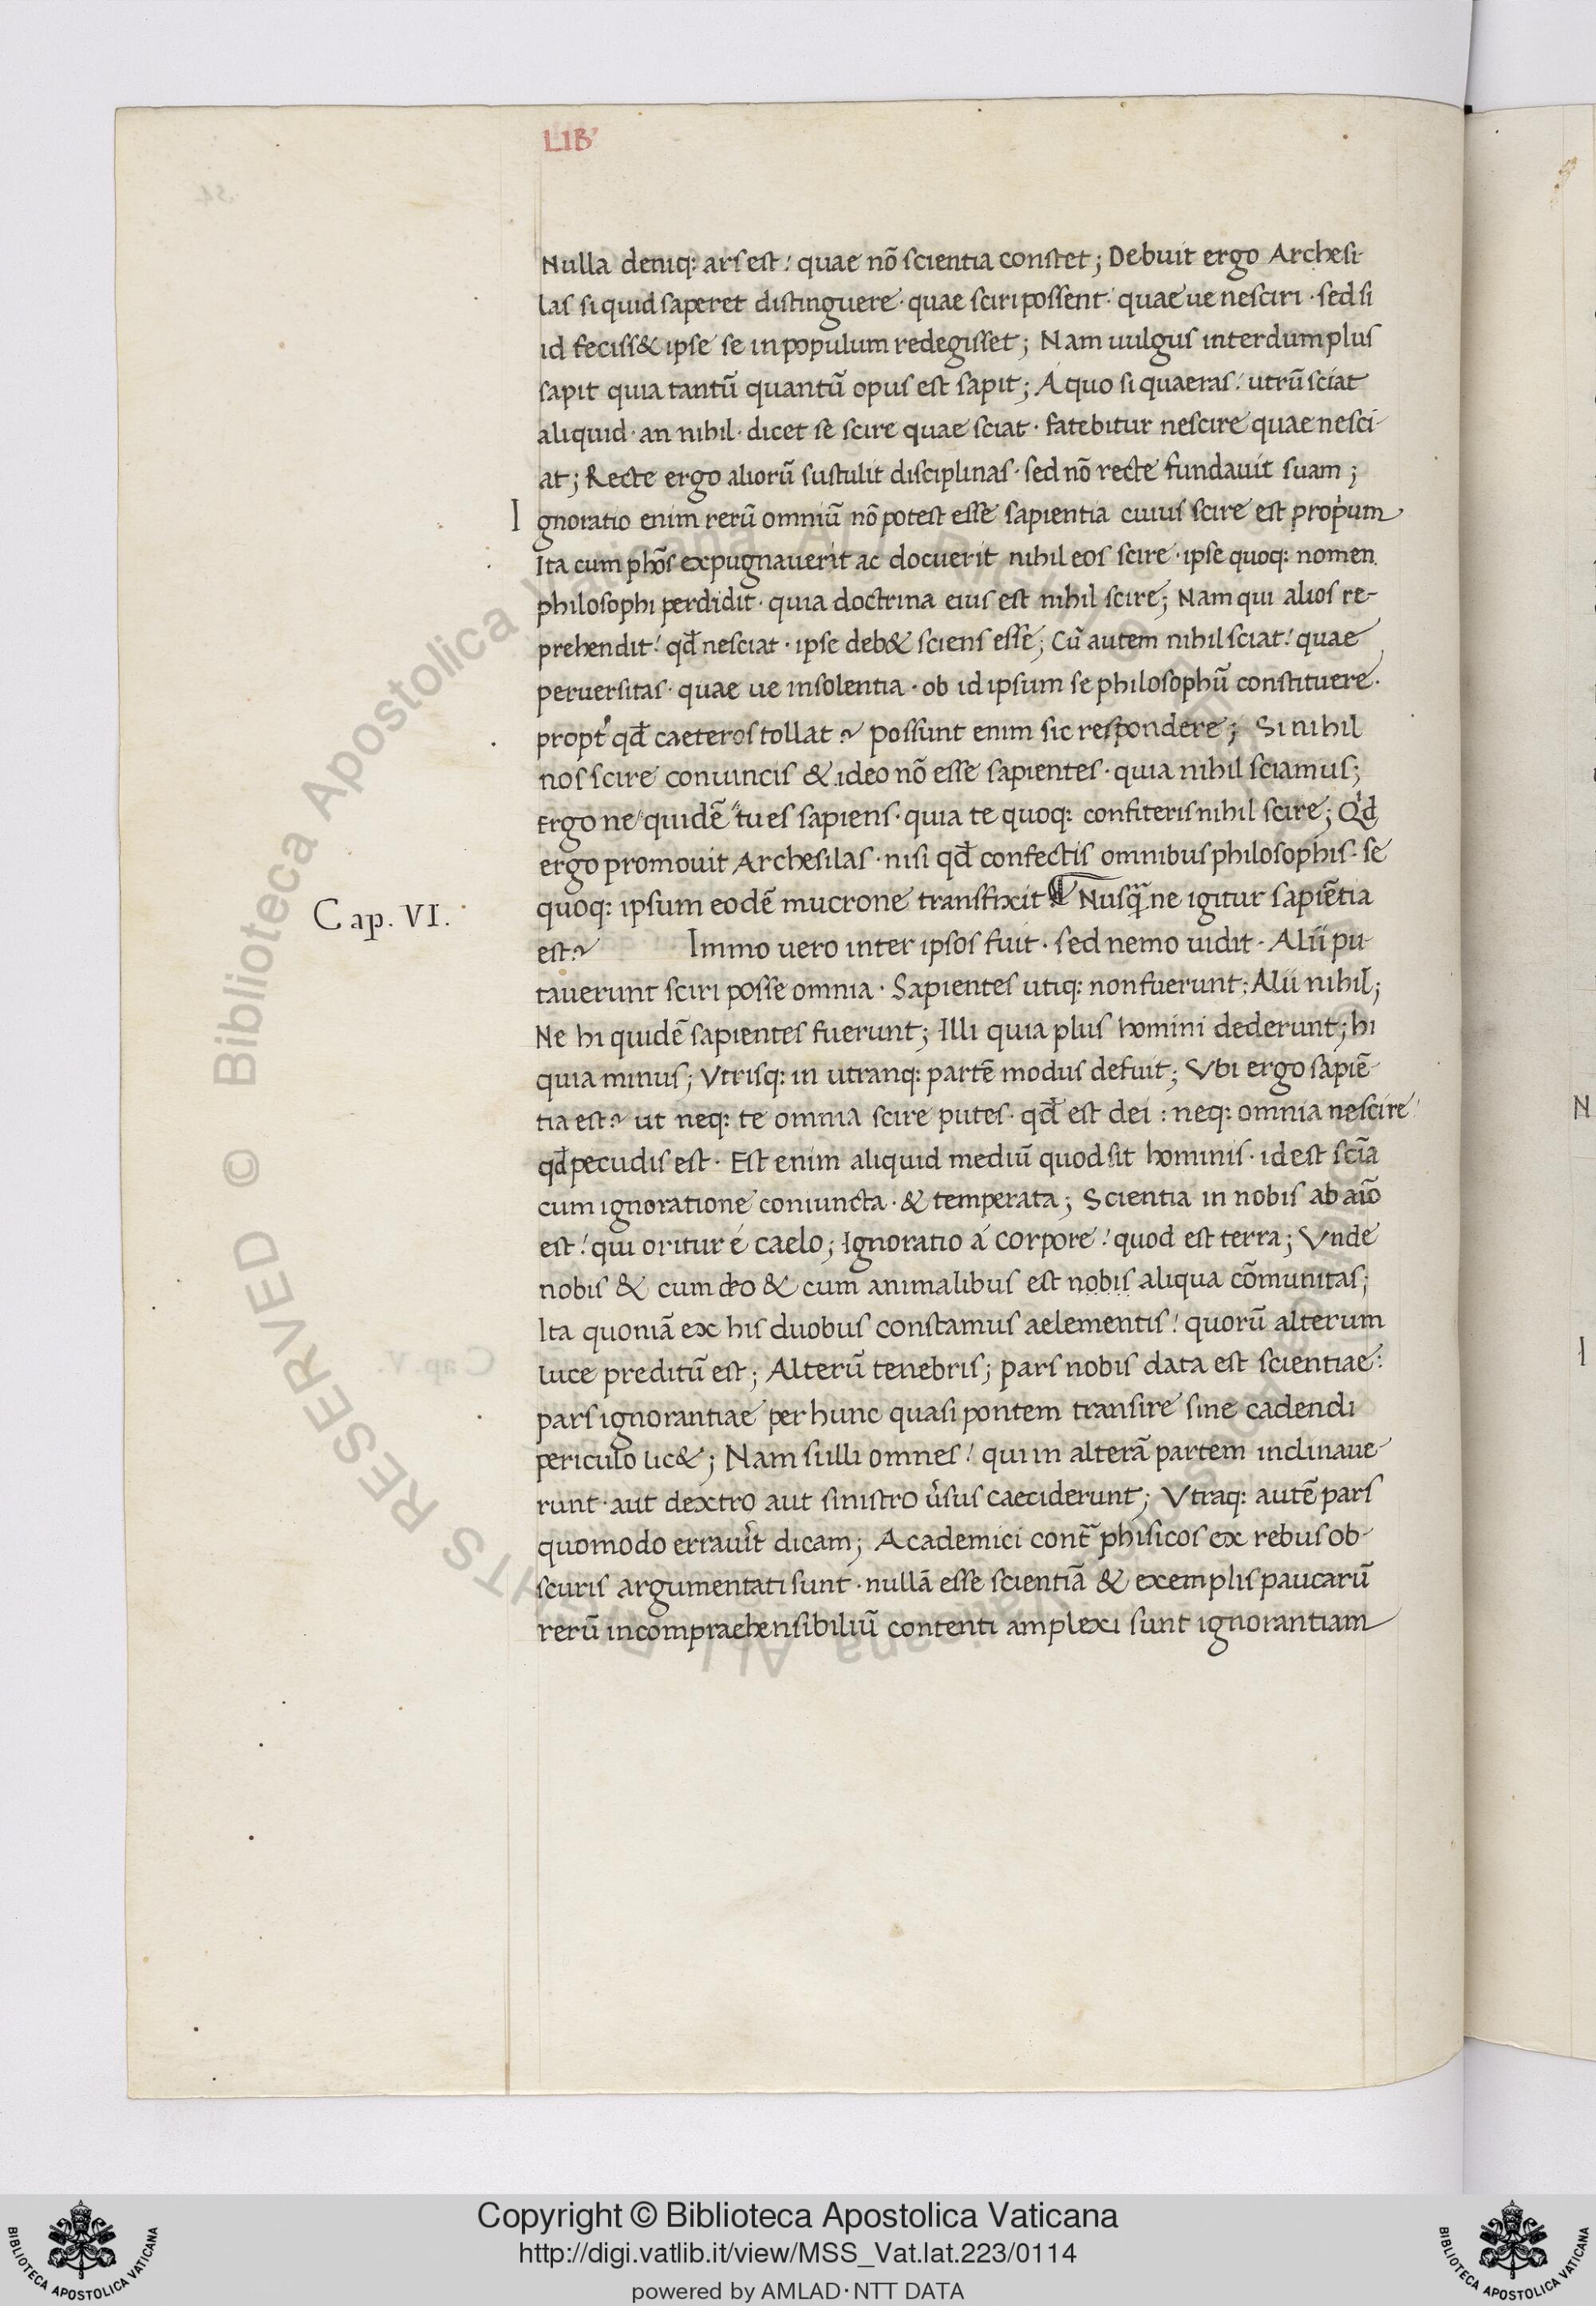 LIB'
Nulla deniq: ars est! quae nō scientia constet; Debuit ergo Archesi-
las si quid saperet distinguere · quae sciri possent · quae ue nesciri · sed si
id feciss& ipse se in populum redegisset; Nam uulgus interdum plus
sapit quia tantū quantū opus est sapit; Á quo si quaeras! utrū sciat
aliquid · an nihil · dicet se scire quae sciat · fatebitur nescire quae nesci-
at; Recte ergo aliorū sustulit disciplinas · sed nō recte fundauit suam;
Ignoratio enim rerū omniū nō potest esse sapientia cuius scire est proprium
Ita cum phōs expugnauerit ac docuerit nihil eos scire · ipse quoq: nomen
philosophi perdidit · quia doctrina eius est nihil scire; Nam qui alios re-
prehendit! qđ nesciat · ipse deb& sciens esse; Cū autem nihil sciat! quae
peruersitas · quae ue insolentia · ob id ipsum se philosophū constituere ·
propt' qđ caeteros tollat? Possunt enim sic respondere; Si nihil
nos scire conuincis & ideo nō esse sapientes · quia nihil sciamus;
Ergo ne quidē tu es sapiens · quia te quoq: confiteris nihil scire; Qd
ergo promouit Archesilas · nisi qđ confectis omnibus philosophis · se
quoq: ipsum eodē mucrone transfixit ¶ Nusq̄ ne igitur sapiētia
Cap. VI.
est? Immo uero inter ipsos fuit · sed nemo uidit · Alii pu-
tauerunt sciri posse omnia · Sapientes utiq: non fuerunt; Alii nihil;
Ne hi quidē sapientes fuerunt; Illi quia plus homini dederunt; hi
quia minus; Vtrisq: in utranq: partē modus defuit; Vbi ergo sapiē-
tia est? ut neq: te omnia scire putes · qđ est dei : neq: omnia nescire!
qđ pecudis est · Est enim aliquid mediū quod sit hominis · id est scīa
cum ignoratione coniuncta · & temperata; Scientia in nobis ab aīo
est! qui oritur é caelo; Ignoratio á corpore! quod est terra; Vnde
nobis & cum deo & cum animalibus est nobis aliqua cōmunitas;
Ita quoniā ex his duobus constamus aelementis! quorū alterum
luce preditū est; Alterū tenebris; pars nobis data est scientiae:
pars ignorantiae per hunc quasi pontem transire sine cadendi
periculo lic&; Nam si illi omnes! qui in alterā partem inclinaue-
runt · aut dextro aut sinistro ūsus caeciderunt; Vtraq: autē pars
quomodo erraui't dicam; Academici cont̄ phisicos ex rebus ob-
scuris argumentati sunt · nullā esse scientiā & exemplis paucarū
rerū incompraehensibiliū contenti amplexi sunt ignorantiam
N
I
© Biblioteca Apostolica Vaticana ALL RIGHTS RESERVED
Copyright © Biblioteca Apostolica Vaticana
http://digi.vatlib.it/view/MSS_Vat.lat.223/0114
powered by AMLAD·NTT DATA
BIBLIOTECA APOSTOLICA VATICANA
BIBLIOTECA APOSTOLICA VATICANA